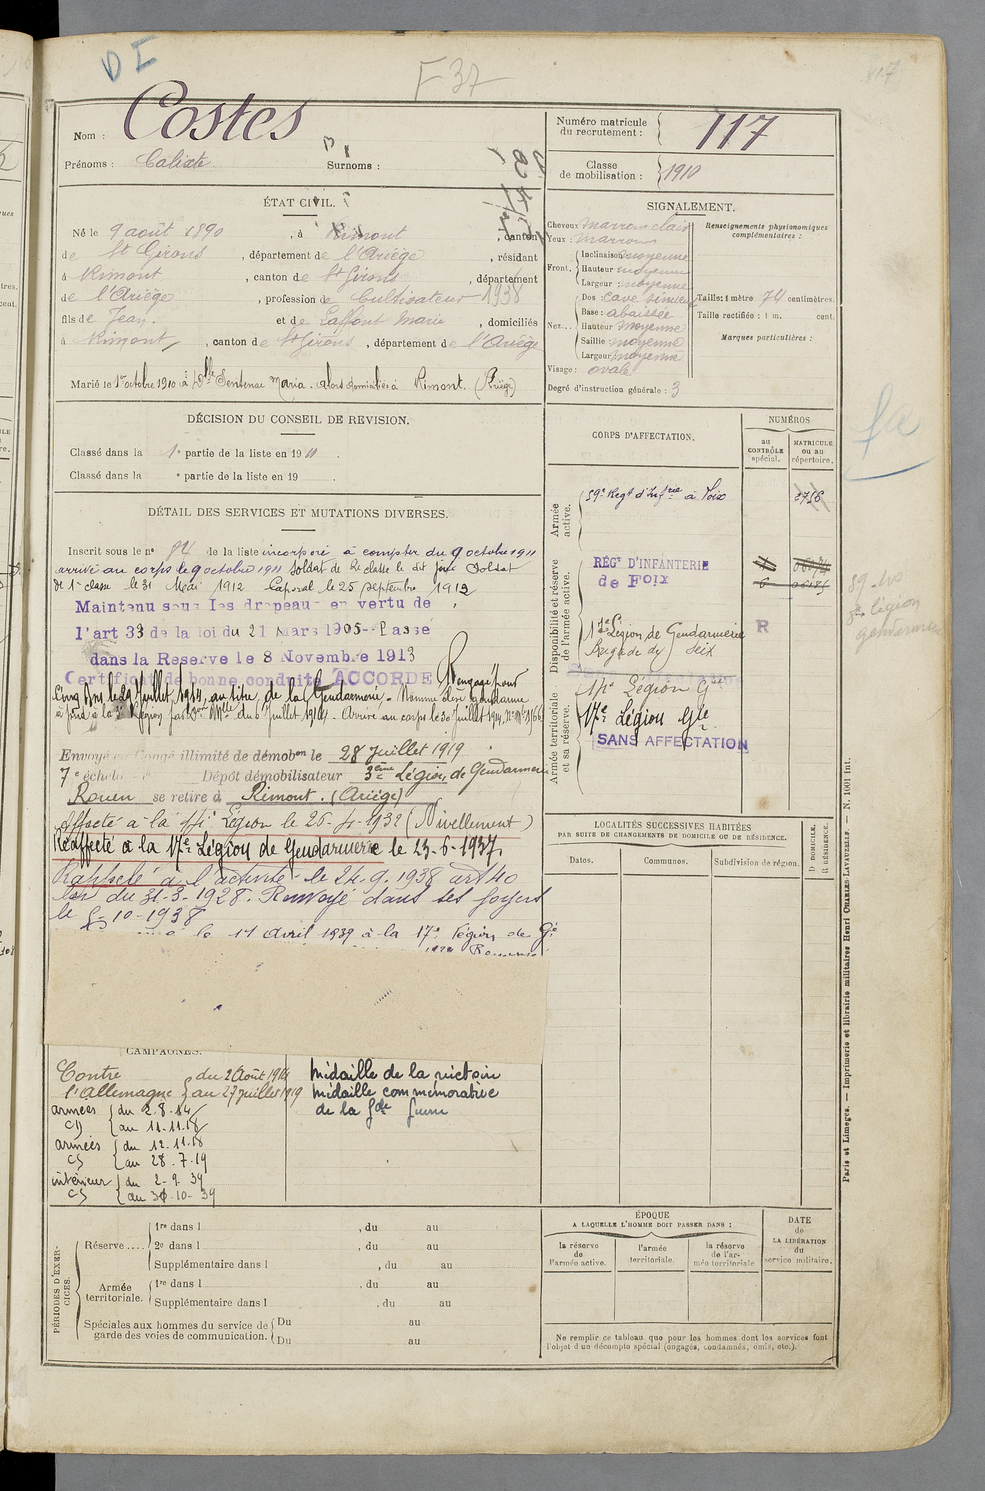 DI
F 37
817
Nom : Costes
Prénoms : Calixte
Surnoms :
Numéro matricule du recrutement : 117
Classe de mobilisation : 1910
ÉTAT CIVIL.
Né le 9 août 1890, à Rimont, canton
de St Girons, département de l'Ariège, résidant
à Rimont, canton de St Girons, département
de l'Ariège, profession de Cultivateur 1938
fils de Jean. et de Laffont Marie, domiciliés
à Rimont, canton de St Girons, département de l'Ariège
Marié le 1er octobre 1910 à Dlle Sentenac Maria. alors domiciliés à Rimont. (Ariège)
SIGNALEMENT.
Cheveux marron clair
Yeux : marrons
Front. Inclinaison moyenne
Hauteur moyenne
Largeur : moyenne
Nez... Dos : cave sinueux
Base : abaissée
Hauteur moyenne
Saillie moyenne
Largeur moyenne
Visage : ovale
Degré d'instruction générale : 3
Renseignements physionomiques complémentaires :
Taille : 1 mètre 74 centimètres.
Taille rectifiée : 1 m. cent.
Marques particulières :
DÉCISION DU CONSEIL DE REVISION.
Classé dans la 1e partie de la liste en 1911.
Classé dans la e partie de la liste en 19
DÉTAIL DES SERVICES ET MUTATIONS DIVERSES.
Inscrit sous le n° 84 de la liste incorporé à compter du 9 octobre 1911
arrivé au corps le 9 octobre 1911 soldat de 2e classe le dit jour Soldat
de 1e classe le 31 Mai 1912 Caporal le 25 septembre 1912
Maintenu sous les drapeaux en vertu de
l'art 33 de la loi du 21 Mars 1905--Passé
dans la Reserve le 8 Novembre 1913
Certificat de bonne conduite ACCORDÉ Rengagé pour
Cinq Ans le 29 Juillet 1914 au titre de la Gendarmerie. Nommé élève gendarme
à pied à la Légion par Don Mlle du 6 Juillet 1914. Arrivé au corps le 30 Juillet 1914.
Envoyé en Congé illimité de démobon le 28 Juillet 1919
7e échelon Dépôt démobilisateur 3ème Légion de Gendarmerie
Rouen se retire à Rimont. (Ariège)
Affecté à la 17e Légion le 25-4-1932 (Nivellement)
Réaffecté à la 17e Légion de Gendarmerie le 23-6-1937.
Rappelé à l'activité le 24.9.1938 art 40
loi du 31-3-1928. Renvoyé dans ses foyers
le 5-10-1938
le 11 Avril 1939 à la 17e Légion de Gie
CORPS D'AFFECTATION.
NUMÉROS
au CONTRÔLE spécial.
MATRICULE ou au répertoire.
Armée active.
59e Regt d'Infrie à Foix
3756
Disponibilité et réserve de l'armée active.
RÉGt D'INFANTERIE
de FOIX
17e Légion de Gendarmerie
Brigade de Seix
R
Armée territoriale et sa réserve.
17e Légion Gie
17e Légion Gie
SANS AFFECTATION
59
Légion
gendarmerie
LOCALITÉS SUCCESSIVES HABITÉES
PAR SUITE DE CHANGEMENTS DE DOMICILE OU DE RÉSIDENCE.
Dates.
Communes.
Subdivision de région.
D DOMICILE.
R RÉSIDENCE.
CAMPAGNES.
Contre l'Allemagne du 2 Août 1914
au 27 juillet 1919
armées du 2.8.14
au 11.11.18
armées du 12.11.18
au 28.7.19
intérieur du 2-9-39
au 30-10-39
Médaille de la victoire
Médaille commémorative
de la Gde Guerre
PÉRIODES D'EXERCICES.
Réserve.... 1re dans l , du au
2e dans l , du au
Supplémentaire dans l , du au
Armée territoriale. 1re dans l , du au
Supplémentaire dans l , du au
Spéciales aux hommes du service de garde des voies de communication. Du au
Du au
ÉPOQUE
A LAQUELLE L'HOMME DOIT PASSER DANS :
la réserve de l'armée active.
l'armée territoriale.
la réserve de l'armée territoriale
DATE de LA LIBÉRATION du service militaire.
Ne remplir ce tableau que pour les hommes dont les services font
l'objet d'un décompte spécial (engagés, condamnés, omis, etc.).
Paris et Limoges. — Imprimerie et librairie militaires Henri CHARLES-LAVAUZELLE. — N. 1001 int.